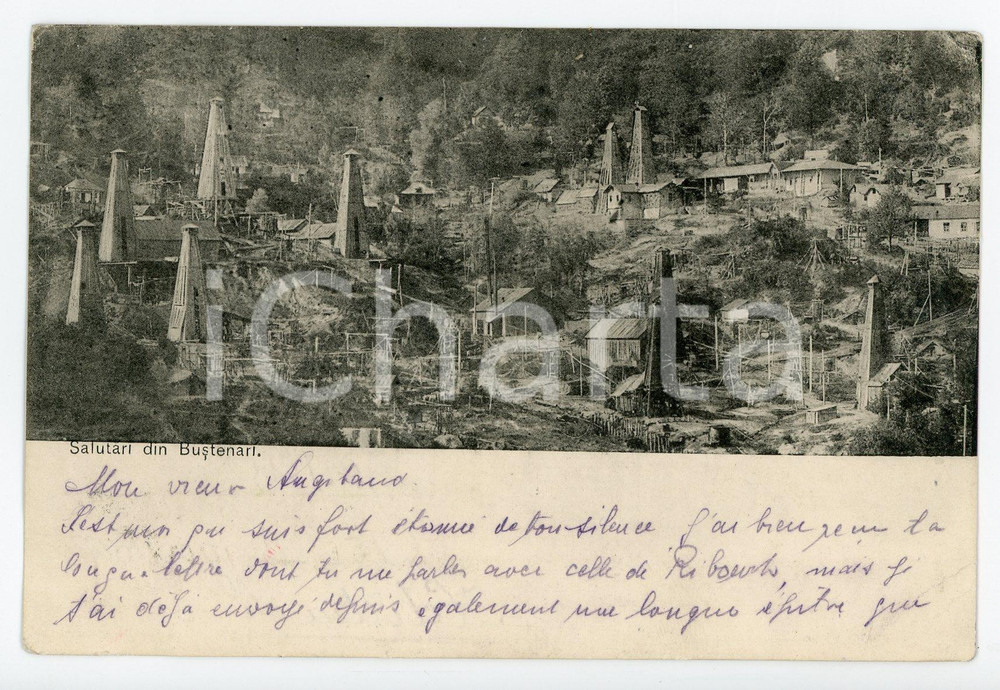 iCharta
Salutari din Buştenari.
Mon vieux
C'est moi qui suis fort étonné de ton silence. J'ai bien reçu ta
longue lettre dont tu me parles avec celle de mais je
t'ai déjà envoyé depuis également une longue épitre que